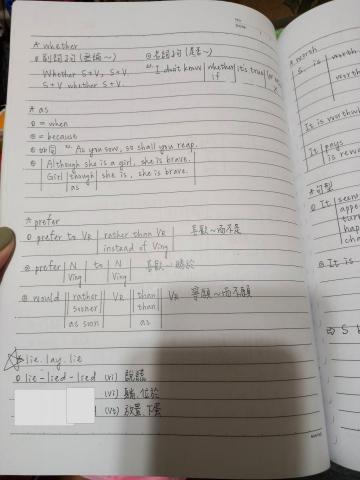 ☆ whether
① 副詞子句 (無論~) ② 名詞子句 (是否~)
Whether S+V, S+V. ex. I don't know | whether | it's true
S+V whether S+V. if
☆ as
① = when
② = because
③ 如同 ex. As you sow, so shall you reap.
④ Although she is a girl, she is brave.
Girl | though | she is, she is brave.
as
☆ prefer
① prefer to VR | rather than VR | 喜歡~而不是
instead of Ving
② prefer | N | to | N | 喜歡~勝於
Ving Ving
③ would | rather | VR | than | VR 寧願~而不願
sooner than
as soon as
☆ lie. lay. lie
① lie - lied - lied (vi) 說謊
(vi) 躺, 位於
(vt) 放置, 下蛋
☆ worth
S. is
worth
worth
It is worthwh
It | pays
is rewa
☆ 句型
① It | seem
appe
turn
hap
cha
② It is
⇒ S b